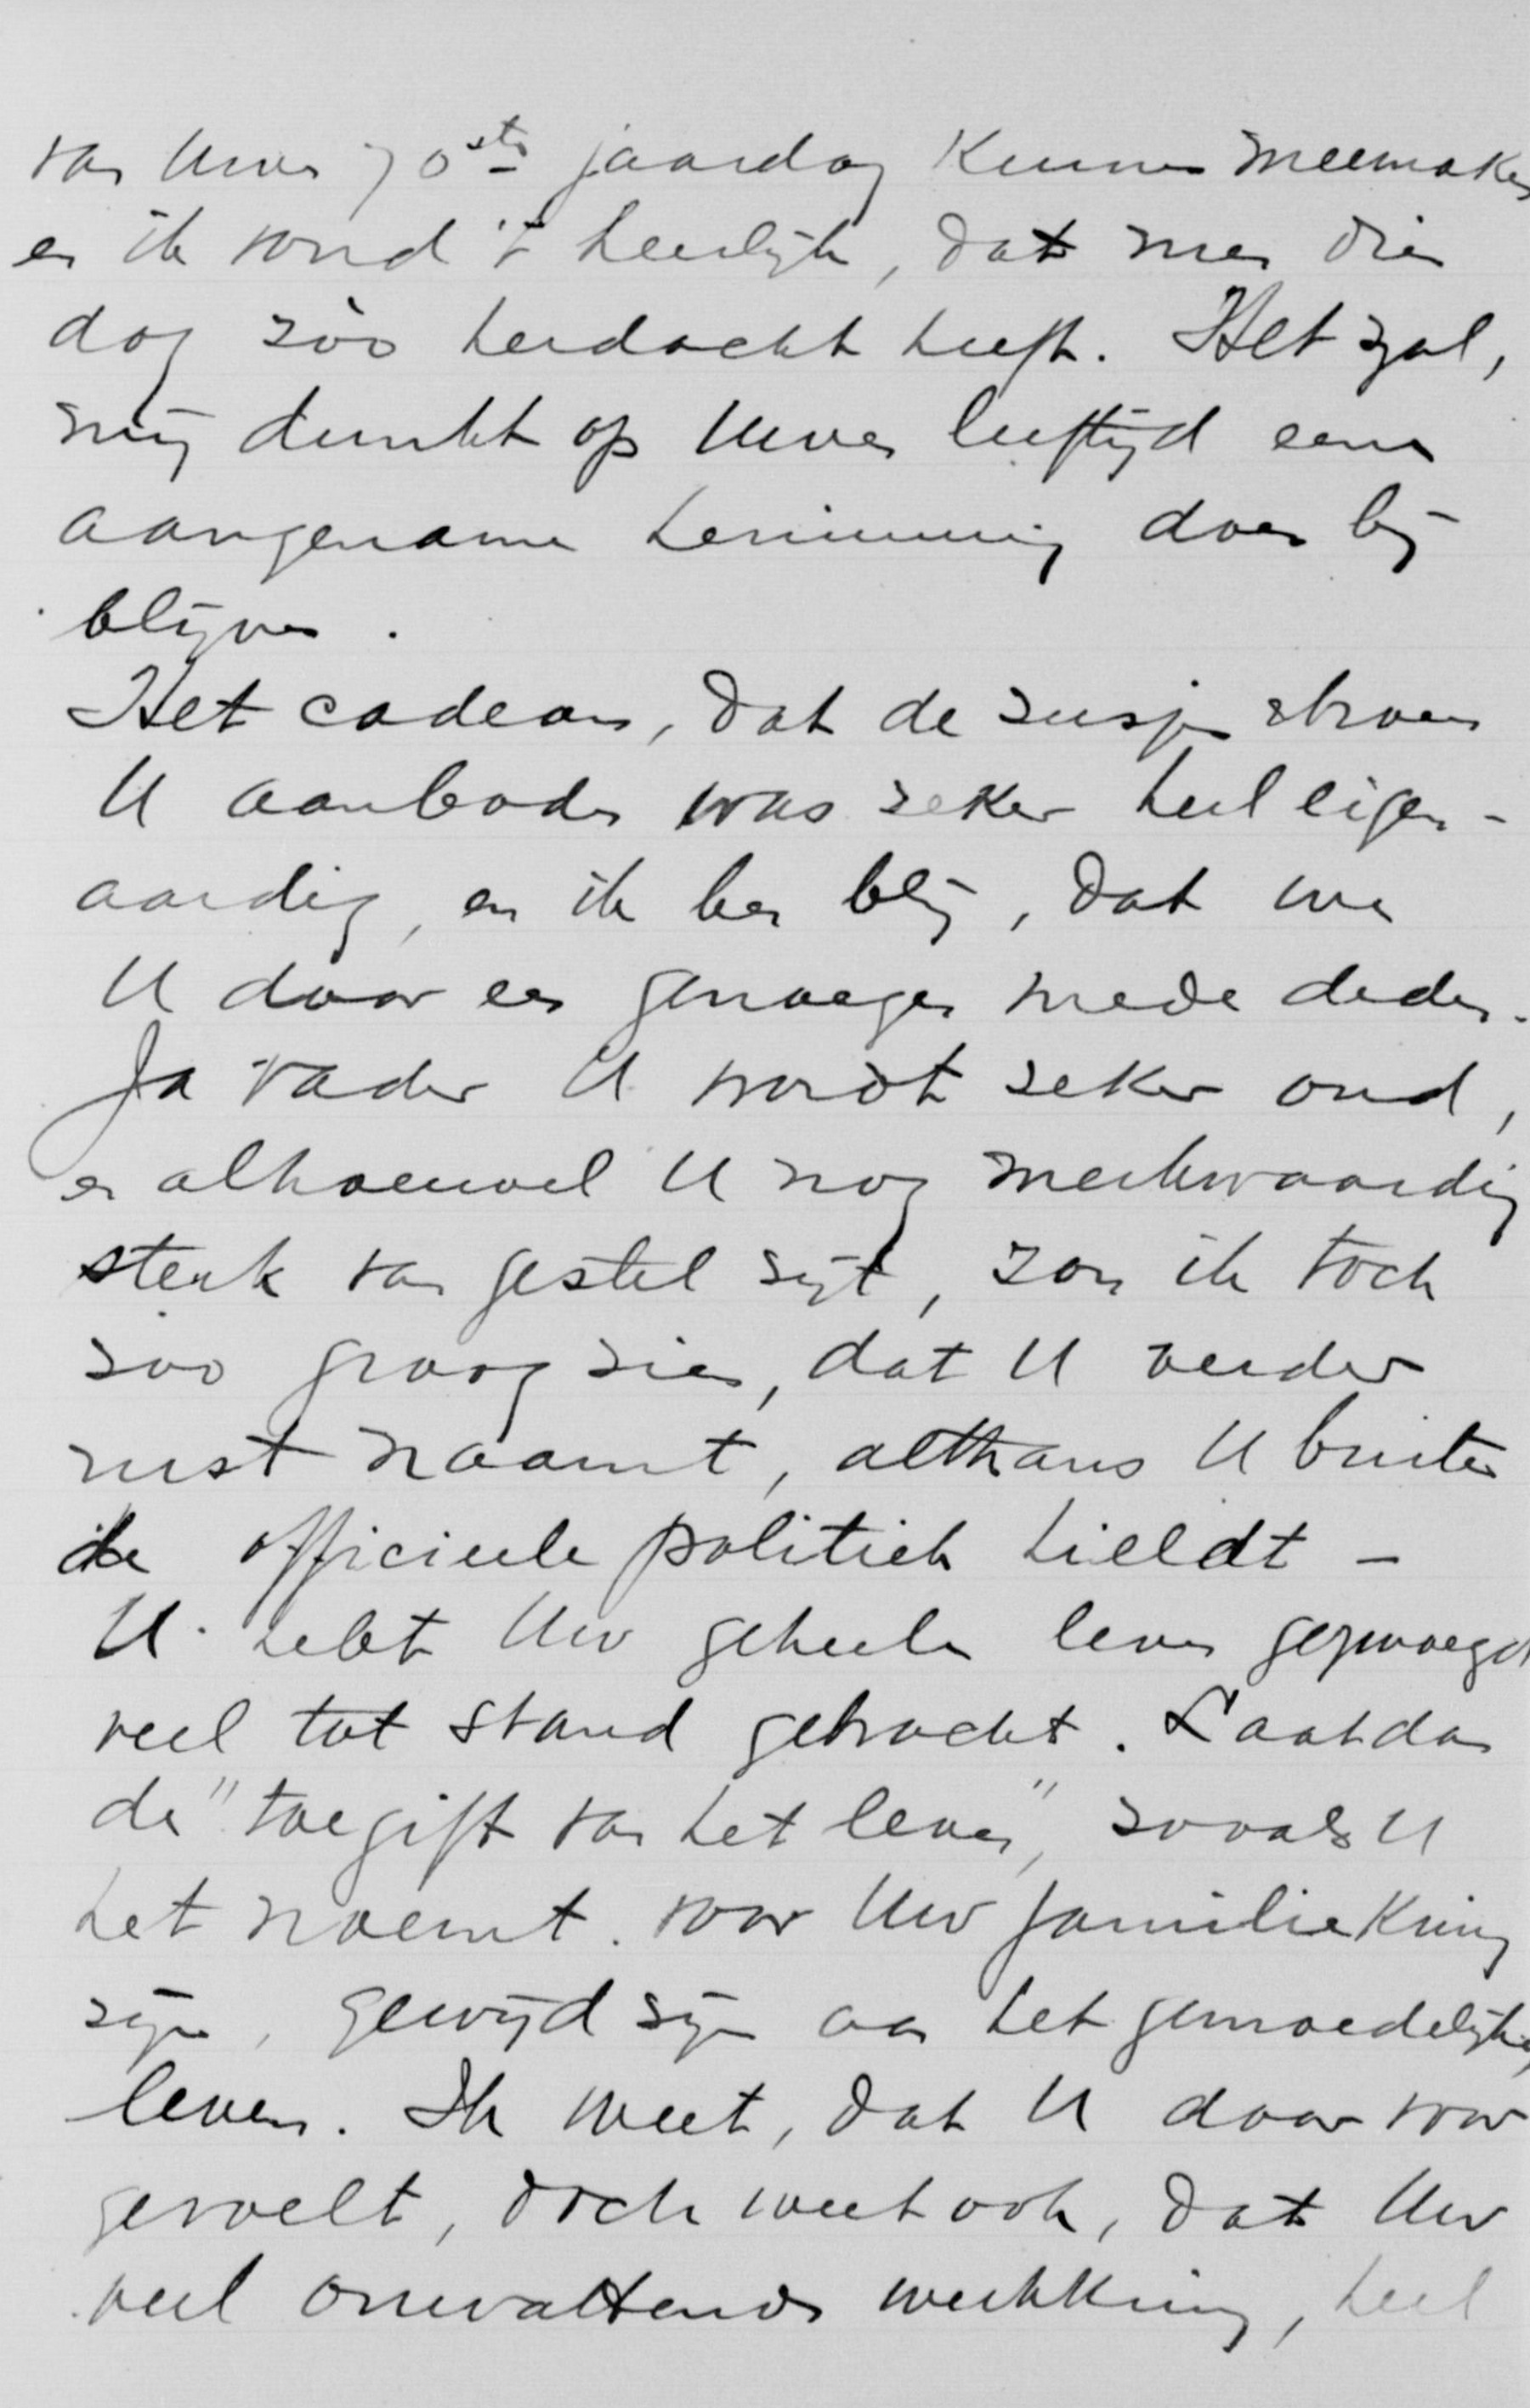 van Uwen 70ste jaardag kunnen meemaken
en ik vond 't heerlijk, dat men dien
dag zòò herdacht heeft. Het zal,
mij dunkt op Uwen leeftijd eene
aangename herinnering doen bij
blijven.
Het cadeau, dat de zusjes
U aanboden was zeker heel eigen-
aardig, en ik ben blij, dat we
U daar een genoegen mede deden.
Ja vader U wordt zeker oud,
en alhoewel U nog merkwaardig
sterk van gestel zijt, zou ik toch
zoo graag zien, dat U verder
rust naamt, althans U buiten
de officieele politiek hieldt -
U hebt Uw geheele leven gezwoegd
veel tot stand gebracht. Laat dan
de "toegift van het leven", zooals U
het noemt. voor Uw familiekring
zijn, gewijd zijn aan het gemoedelijke
leven. Ik weet, dat U daar voor
gevoelt, doch weet ook, dat Uw
veel omvattende werkkring, heel